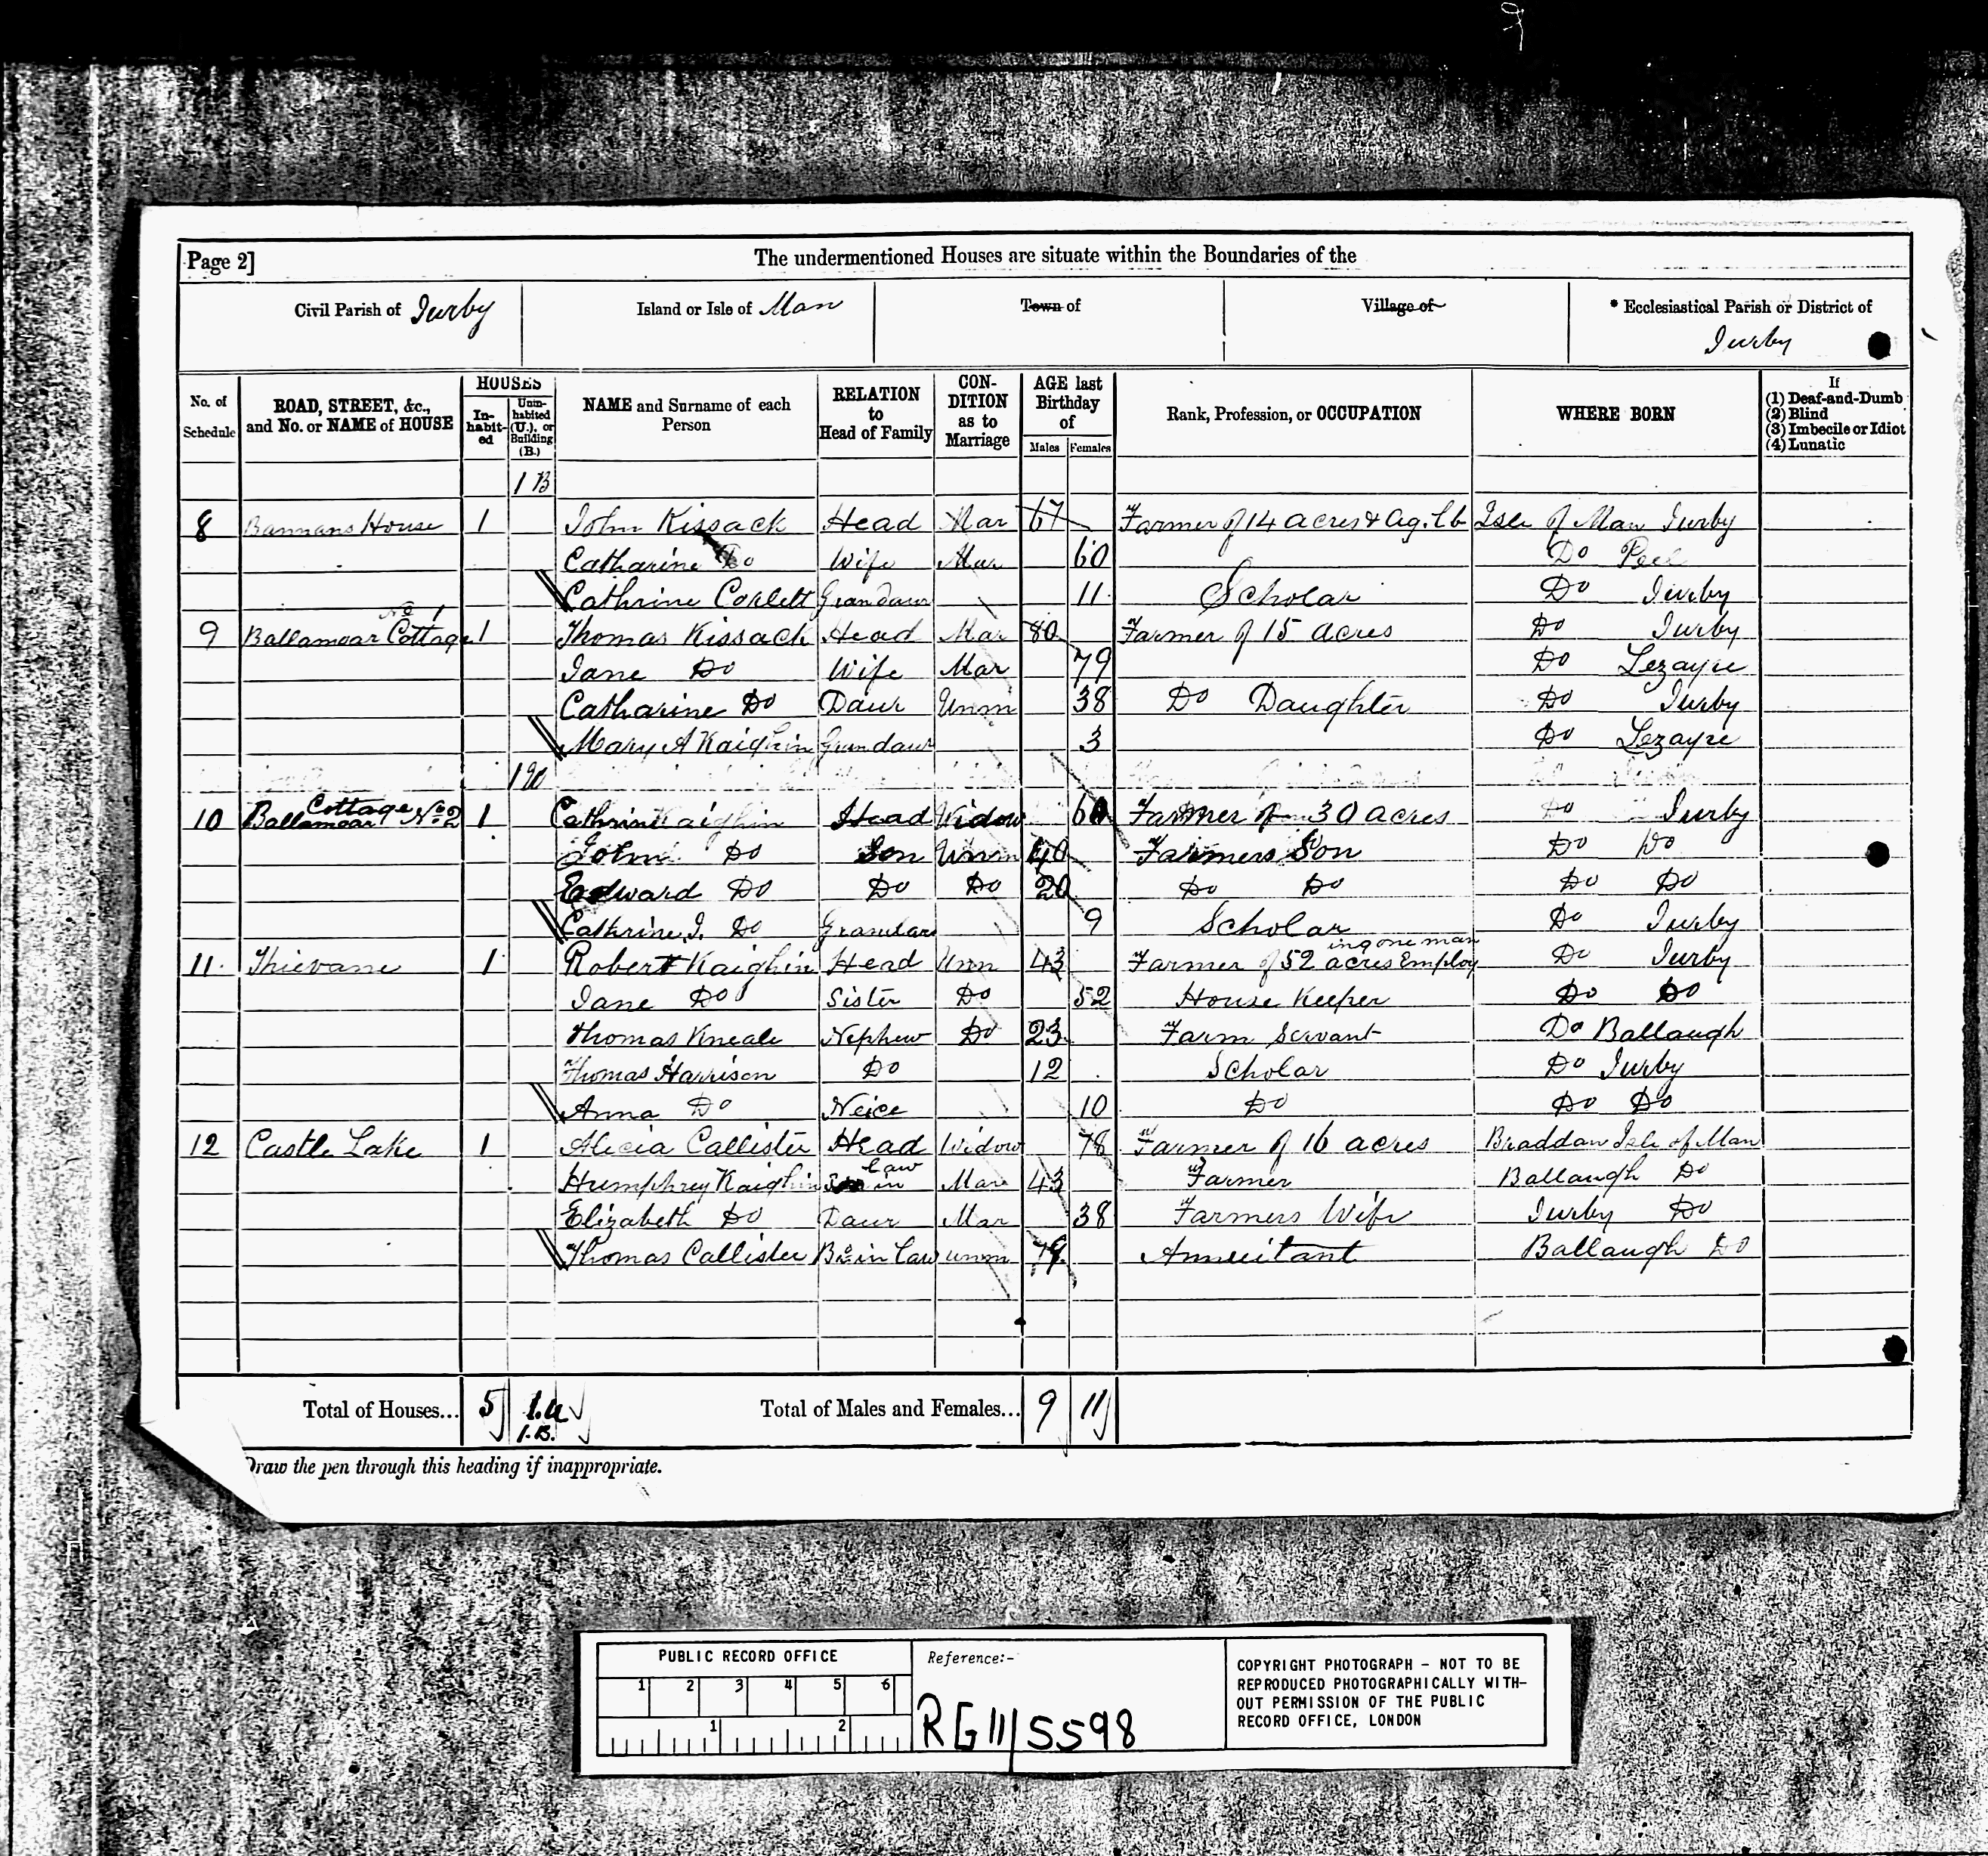 Page 2]
The undermentioned Houses are situate within the Boundaries of the
Civil Parish of Jurby
Island or Isle of Man
Town of
Village of
* Ecclesiastical Parish or District of
Jurby
No. of Schedule
ROAD, STREET, &c., and No. or NAME of HOUSE
HOUSES
In-habit-ed
Unin-habited (U.), or Building (B.)
NAME and Surname of each Person
RELATION to Head of Family
CON-DITION as to Marriage
AGE last Birthday of
Males Females
Rank, Profession, or OCCUPATION
WHERE BORN
If
(1) Deaf-and-Dumb
(2) Blind
(3) Imbecile or Idiot
(4) Lunatic
1 B
8 Bannans House 1 John Kissack Head Mar 67 Farmer of 14 acres & Ag. Lb Isle of Man Jurby
Catharine Do Wife Mar 60 Do Peel
Cathrine Corlett Grandaur 11 Scholar Do Jurby
9 Ballamoar Cottage No 1 1 Thomas Kissack Head Mar 80 Farmer of 15 acres Do Jurby
Jane Do Wife Mar 79 Do Lezayre
Catharine Do Daur Unm 38 Do Daughter Do Jurby
Mary A Kaighin Grandaur 3 Do Lezayre
1 U
10 Ballamoar Cottage No 2 1 Cathrine Kaighin Head Widow 60 Farmer of 30 acres Do Jurby
John Do Son Unm 40 Farmers Son Do Do
Edward Do Do Do 20 Do Do Do Do
Cathrine J. Do Grandaur 9 Scholar Do Jurby
11 Thievane 1 Robert Kaighin Head Unm 43 Farmer of 52 acres Employing one man Do Jurby
Jane Do Sister Do 52 House Keeper Do Do
Thomas Kneale Nephew Do 23 Farm Servant Do Ballaugh
Thomas Harrison Do 12 Scholar Do Jurby
Anna Do Neice 10 Do Do Do
12 Castle Lake 1 Alicia Callister Head Widow 78 Farmer of 16 acres Braddan Isle of Man
Humphrey Kaighin Son in law Mar 43 Farmer Ballaugh Do
Elizabeth Do Daur Mar 38 Farmers Wife Jurby Do
Thomas Callister Bro in Law unm 79 Annuitant Ballaugh Do
Total of Houses... 5 1.u 1.B.
Total of Males and Females... 9 11
Draw the pen through this heading if inappropriate.
PUBLIC RECORD OFFICE
1 2 3 4 5 6
1 2
Reference:-
RG 11/5598
COPYRIGHT PHOTOGRAPH - NOT TO BE
REPRODUCED PHOTOGRAPHICALLY WITH-
OUT PERMISSION OF THE PUBLIC
RECORD OFFICE, LONDON